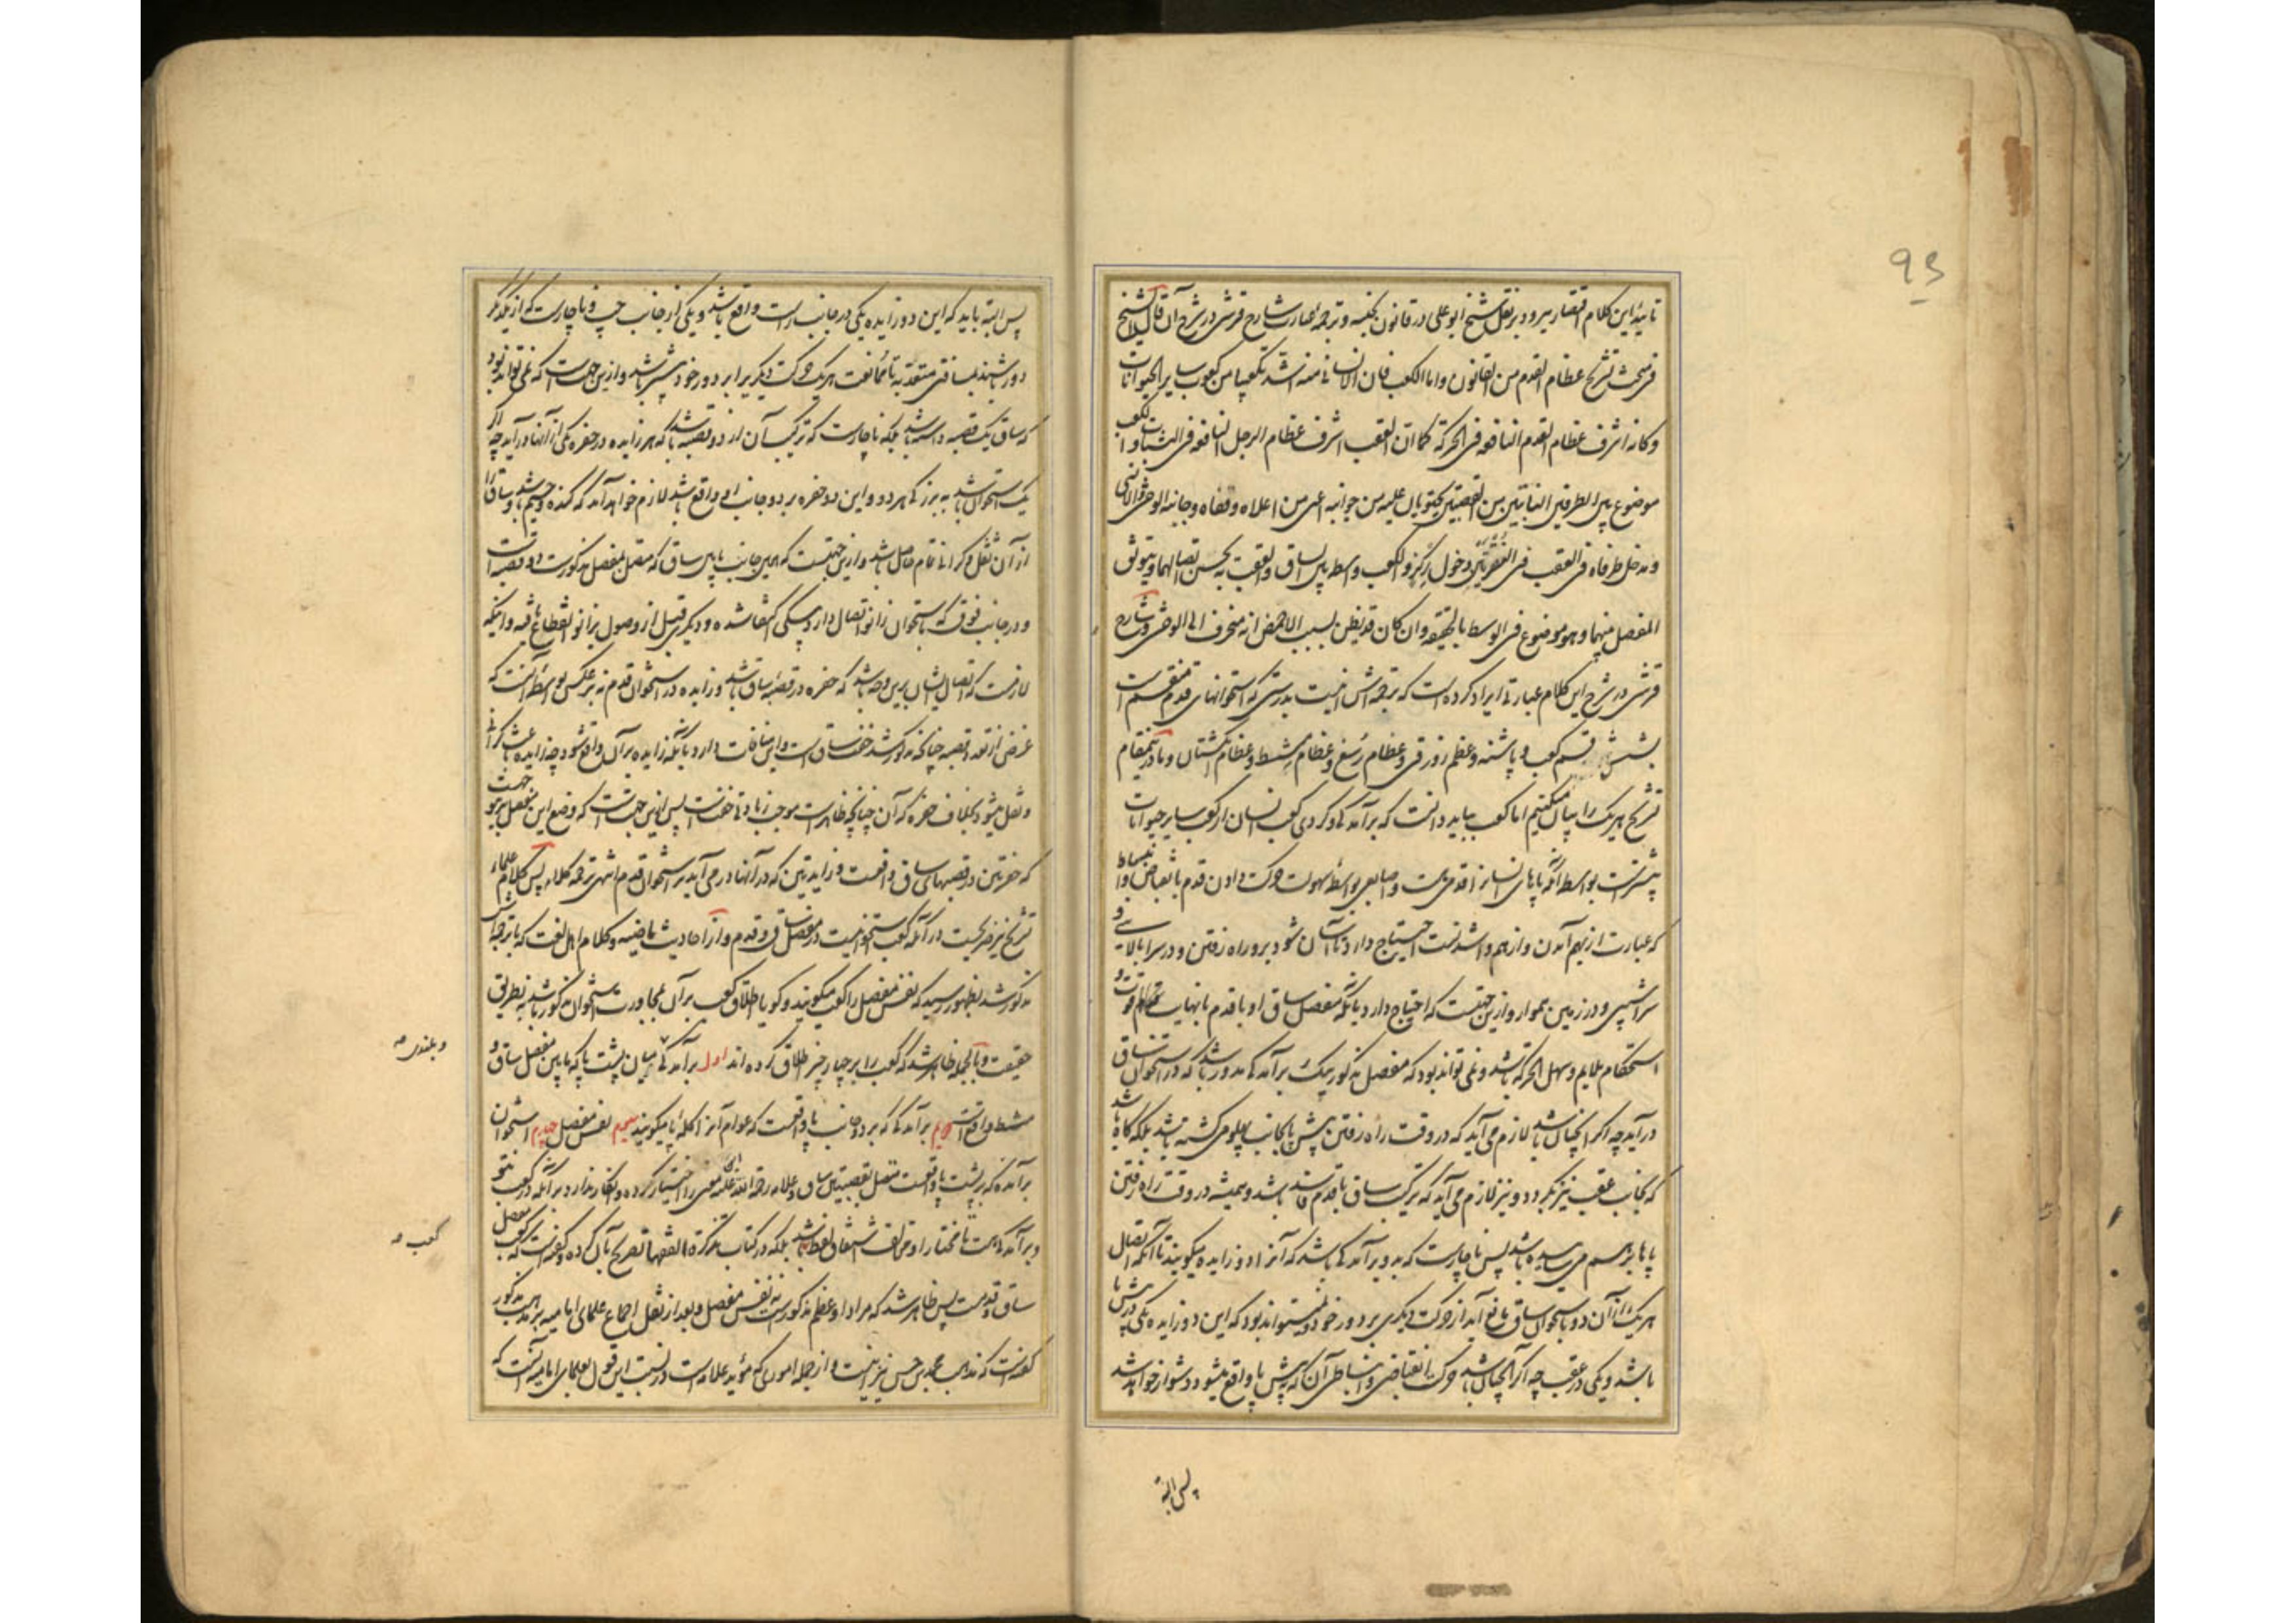 تایید این کلام اقتصار میرود بر نقل شیخ ابوعلی در قانون بجنسه و ترجمه عبارت شارح قرشی در شرح آن قال الشیخ
فی بحث تشریح عظام القدم من القانون واما الکعب فان الانسانی منه اشد تکعیبا من کعوب سایر الحیوانات
وکانه اشرف عظام القدم النافعه فی الحرکة کما ان العقب اشرف عظام الرجل النافعه فی الثبات والکعب
موضوع بین الطرفین الناتئین من القصبتین یحتویان علیه من جوانبه اعنی من اعلاه وقفاه وجانبه الوحشی والانسی
ویدخل طرفاه فی العقب فی النقرتین دخول رکز والکعب واسطه بین الساق والعقب به یحسن اتصالهما ویتوثق
المفصل بینهما وهو موضوع فی الوسط بالحقیقه وان کان قد یظن بسبب الاخمص انه منحرف الی الوحشی وشارح
قرشی در شرح این کلام عبارتی ایراد کرده است که ترجمه‌اش اینست بدرستی که استخوانهای قدم منقسم است
بشش قسم کعب و پاشنه وعظم زورقی وعظام رسغ وعظام مشط وعظام انگشتان وما در اینمقام
تشریح هریک را بیان میکنیم اما کعب بباید دانست که برآمدگی و گردی کعب انسان از کعب سایر حیوانات
بیشتر است بواسطه آنکه پاهای انسانرا قدمی هست واصابعی بواسطه سهولت حرکت دادن قدم بانقباض وانبساط
که عبارت از بهم آمدن و از هم واشدنست احتیاج دارد تا آسان شود برو راه رفتن و در سرابالایی و
سراشیبی و در زمین هموار و ازین جهتست که احتیاج دارد بآنکه مفصل ساق او با قدم بانهایت قوت و
استحکام ملایم وسهل الحرکة باشد ونمی تواند بود که مفصل مذکور بیک برآمدگی مدور باشد که در استخوان ساق
درآید چه اگر اینچنان باشد لازم می آید که در وقت راه رفتن پیش پا بجانب پهلو می گشته باشد بلکه گاه باشد
که بجانب عقب نیز بگردد و نیز لازم می آید که ترکیب ساق با قدم فاسد باشد وهمیشه در وقت راه رفتن
پاها بر هم می رسیده باشد پس ناچارست که بدو برآمدگی باشد که آنرا دو زایده میگویند تا آنکه اتصال
هر یک از آن دو باستخوان ساق مانع آید از حرکت دیگری بر دور خود ونمیتواند بود که این دو زایده یکی در پیش پا
باشد ویکی در عقب چه اگر اینچنان باشد حرکت انقباضی وانبساطی آن که به پیش پا واقع میشود دشوار خواهد شد
پس البته
پس البته باید که این دو زایده یکی در جانب راست واقع باشد ویکی از جانب چپ وناچارست که از یکدیگر
دور باشند بمسافتی معتد به تا ممانعت هر یک حرکت دیگریرا بر دور خود بیشتر باشد وازین جهت است که نمی تواند بود
که ساق یک قصبه داشته باشد بلکه ناچارست که ترکیب آن از دو قصبه باشد که هر زایده در حفره یکی از آنها درآید چه اگر
یک استخوان باشد به بزرگی هر دو واین دو حفره بر دو جانب او واقع باشد لازم خواهد آمد که گنده وجسیم باشد وساق را
از آن ثقل وگرانی تمام حاصل باشد وازین جهتست که همین جانب پایین ساق که متصل بمفصل مذکورست دو قصبه است
ودر جانب فوق که باستخوان زانو اتصال دارد بیکی اکتفا شده ودیگری قبل از وصول بزانو انقطاع یافته واینکه
لازمست که اتصال ایشان برین وجه باشد که حفره در قصبه ساق باشد وزایده در استخوان قدم نه برعکس بواسطه آنست که
غرض از تعدد قصبه چنانکه مذکور شد خفت ساق است واین منافات دارد بآنکه زایده بر آن واقع شود چه زایده باعث گرانی
وثقل میشود بخلاف حفره که آن چنانچه ظاهرست موجب زیادتی خفتست پس ازین جهتست که وضع این مفصل
که حفرتین در قصبهای ساق واقعست وزایدتین که در آنها درمی آید بر استخوان قدم انتهی ترجمه کلامه پس کلام علماء
تشریح نیز صریحست در آنکه کعب استخوانیست در مفصل ساق وقدم واز احادیث ماضیه وکلام اهل لغت که با ترجمه‌اش
مذکور شد بظهور رسید که نفس مفصل را کعب میگویند وگویا اطلاق کعب بر آن بمجاورت استخوان مذکور باشد نه بطریق
حقیقت وبالجمله ظاهر شد که کعب را بر چهار چیز اطلاق کرده اند اول برآمدگی میان پشت پا که مابین مفصل ساق و
مشط واقع است دویم برآمدگی که بر دو جانب پا واقعست که عوام آنرا میگویند سیم نفس مفصل چهارم استخوان
برآمده که بر پشت پا واقعست متصل بقصبتین ساق وعلامه رحمه الله علیه این معنی را اختیار کرده وانکار ندارد بر آنکه در کعب نتو
وبرآمدگی هست بلکه در کتاب تذکرة الفقها تصریح بآن کرده وگفته است که کعب مفصل
ساق وقدمست پس ظاهر شد که مراد او عظم مذکورست نه نفس مفصل وبعد از نقل اجماع علمای امامیه بر مذهب مذکور
گفته است که مذهب محمد بن حسن نیز اینست واز جمله اموری که مؤید علامه است در نسبت این قول بعلمای امامیه آنست که
وبلندی صه
کعب صه
93